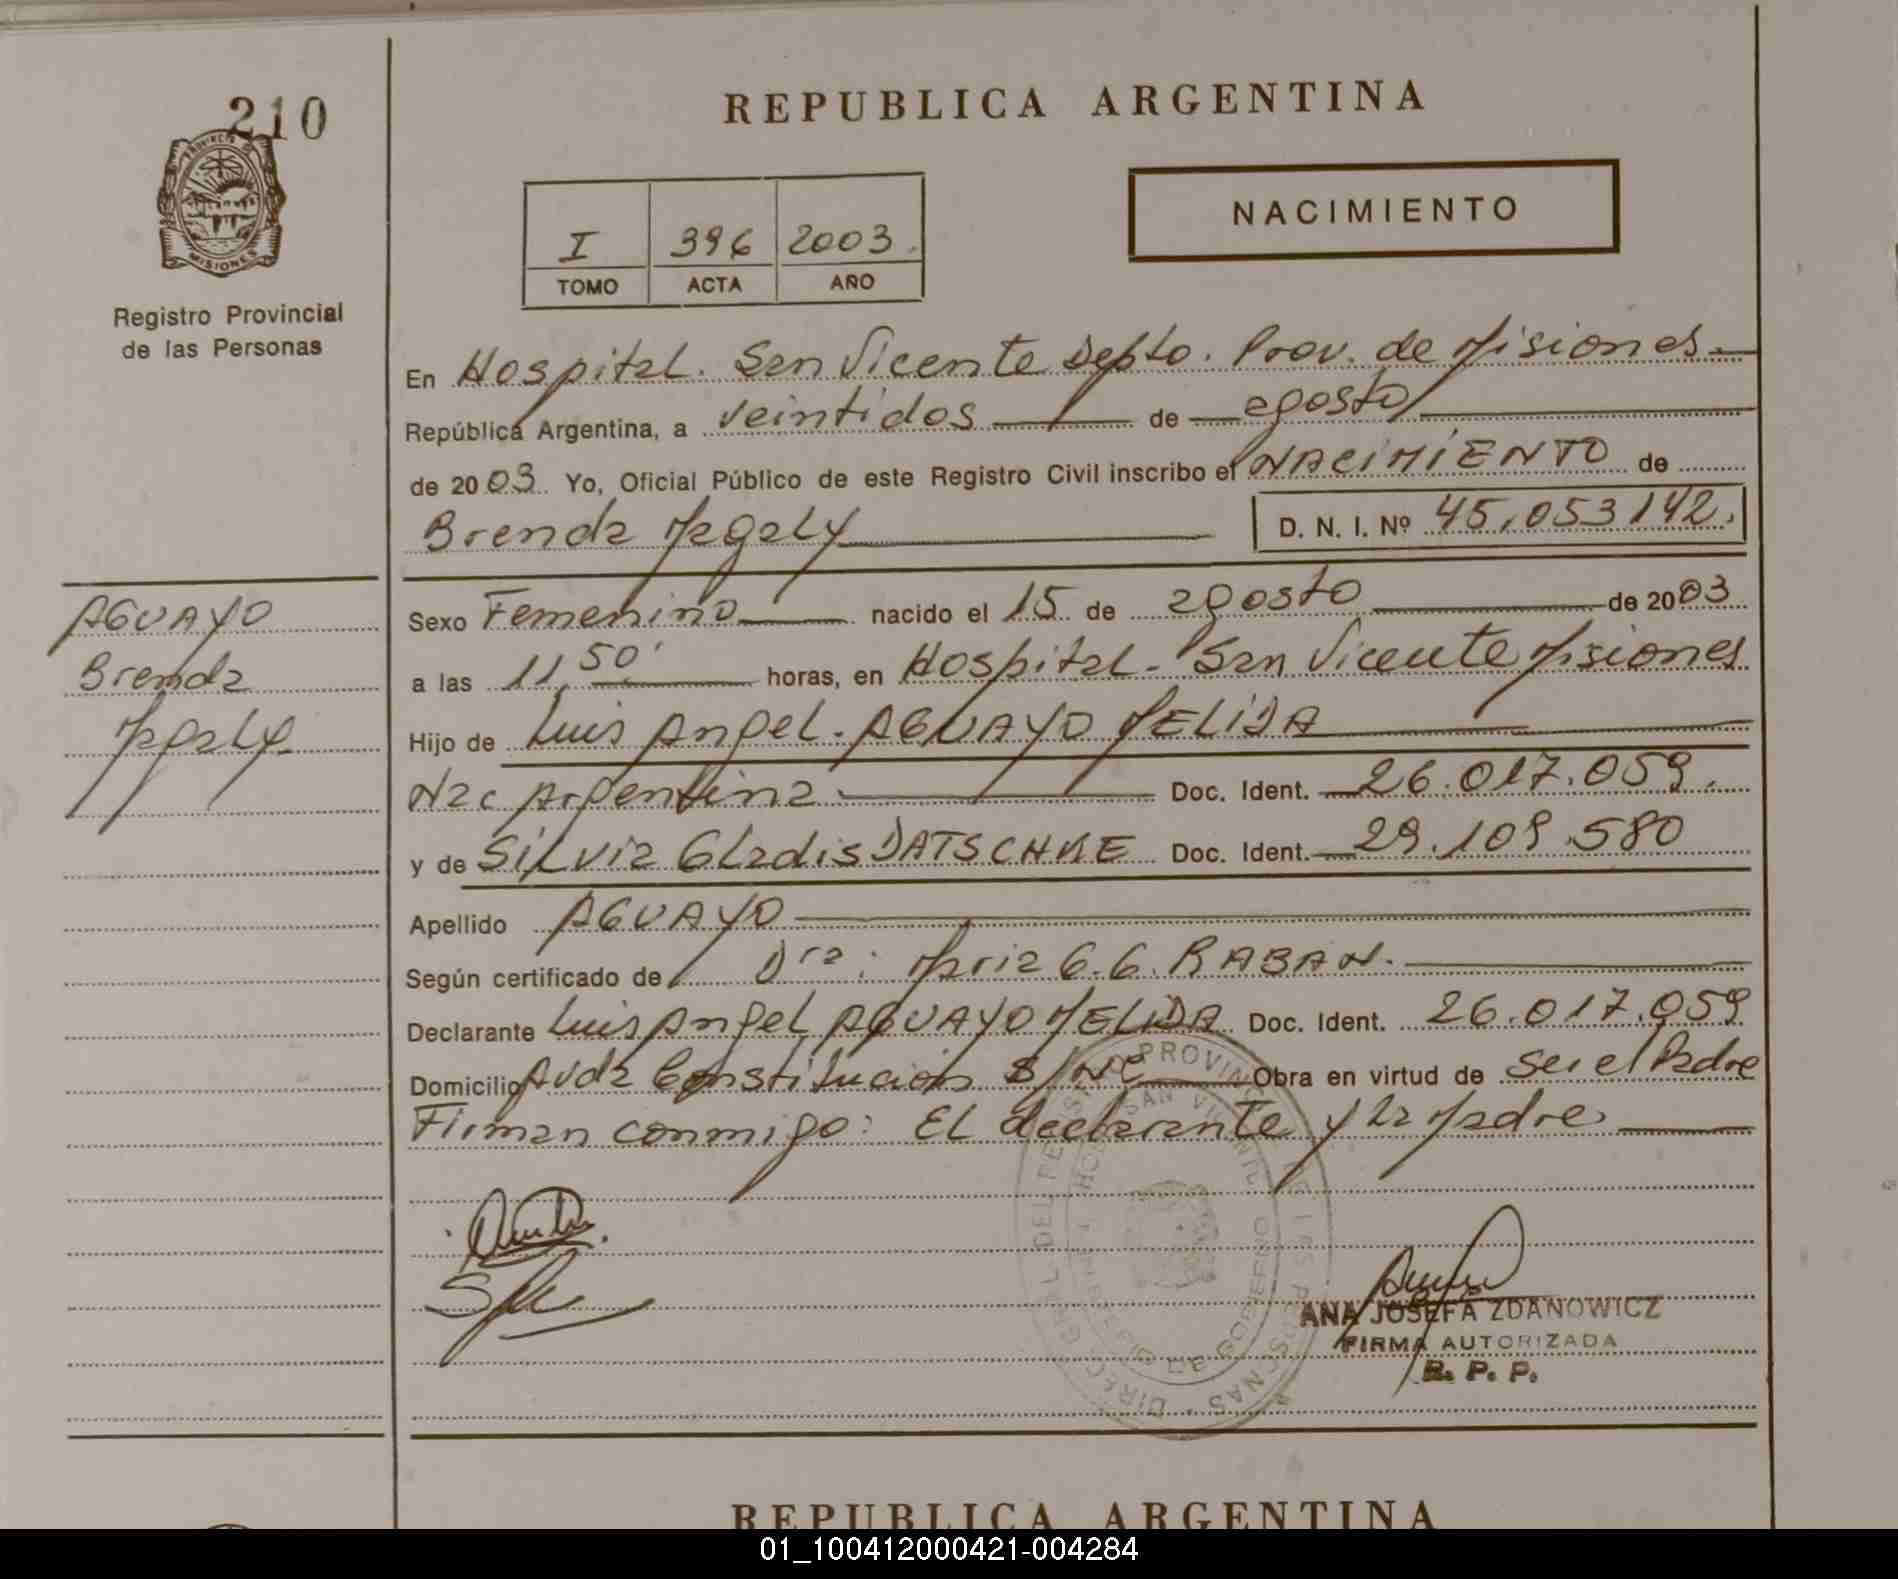 210
PROVINCIA DE
MISIONES
Registro Provincial
de las Personas
REPUBLICA ARGENTINA
NACIMIENTO
I 396 2003
TOMO ACTA AÑO
En Hospital. San Vicente Depto. Prov. de Misiones.
República Argentina, a veintidos de agosto
de 2003 Yo, Oficial Público de este Registro Civil inscribo el NACIMIENTO de
Brenda Magaly D. N. I. Nº 45.053142.
AGUAYO
Brenda
Magaly
Sexo Femenino nacido el 15 de agosto de 2003
a las 11,50' horas, en Hospital - San Vicente Misiones
Hijo de Luis Angel - AGUAYO MELIDA
Nac Argentina Doc. Ident. 26.017.059.
y de Silvia Gladis DATSCHKE Doc. Ident. 29.109.580
Apellido AGUAYO
Según certificado de Dra: Maria G.G. RABAN.
Declarante Luis Angel AGUAYO MELIDA Doc. Ident. 26.017.059
Domicilio Avda Constitucion S/Nº Obra en virtud de Ser el Padre
Firman conmigo: El declarante y la Madre
DIREC. GRAL. DEL REGISTRO PROVINCIAL DE LAS PERSONAS
SAN VICENTE
GOBIERNO
ANA JOSEFA ZDANOWICZ
FIRMA AUTORIZADA
R. P. P.
REPUBLICA ARGENTINA
01_100412000421-004284